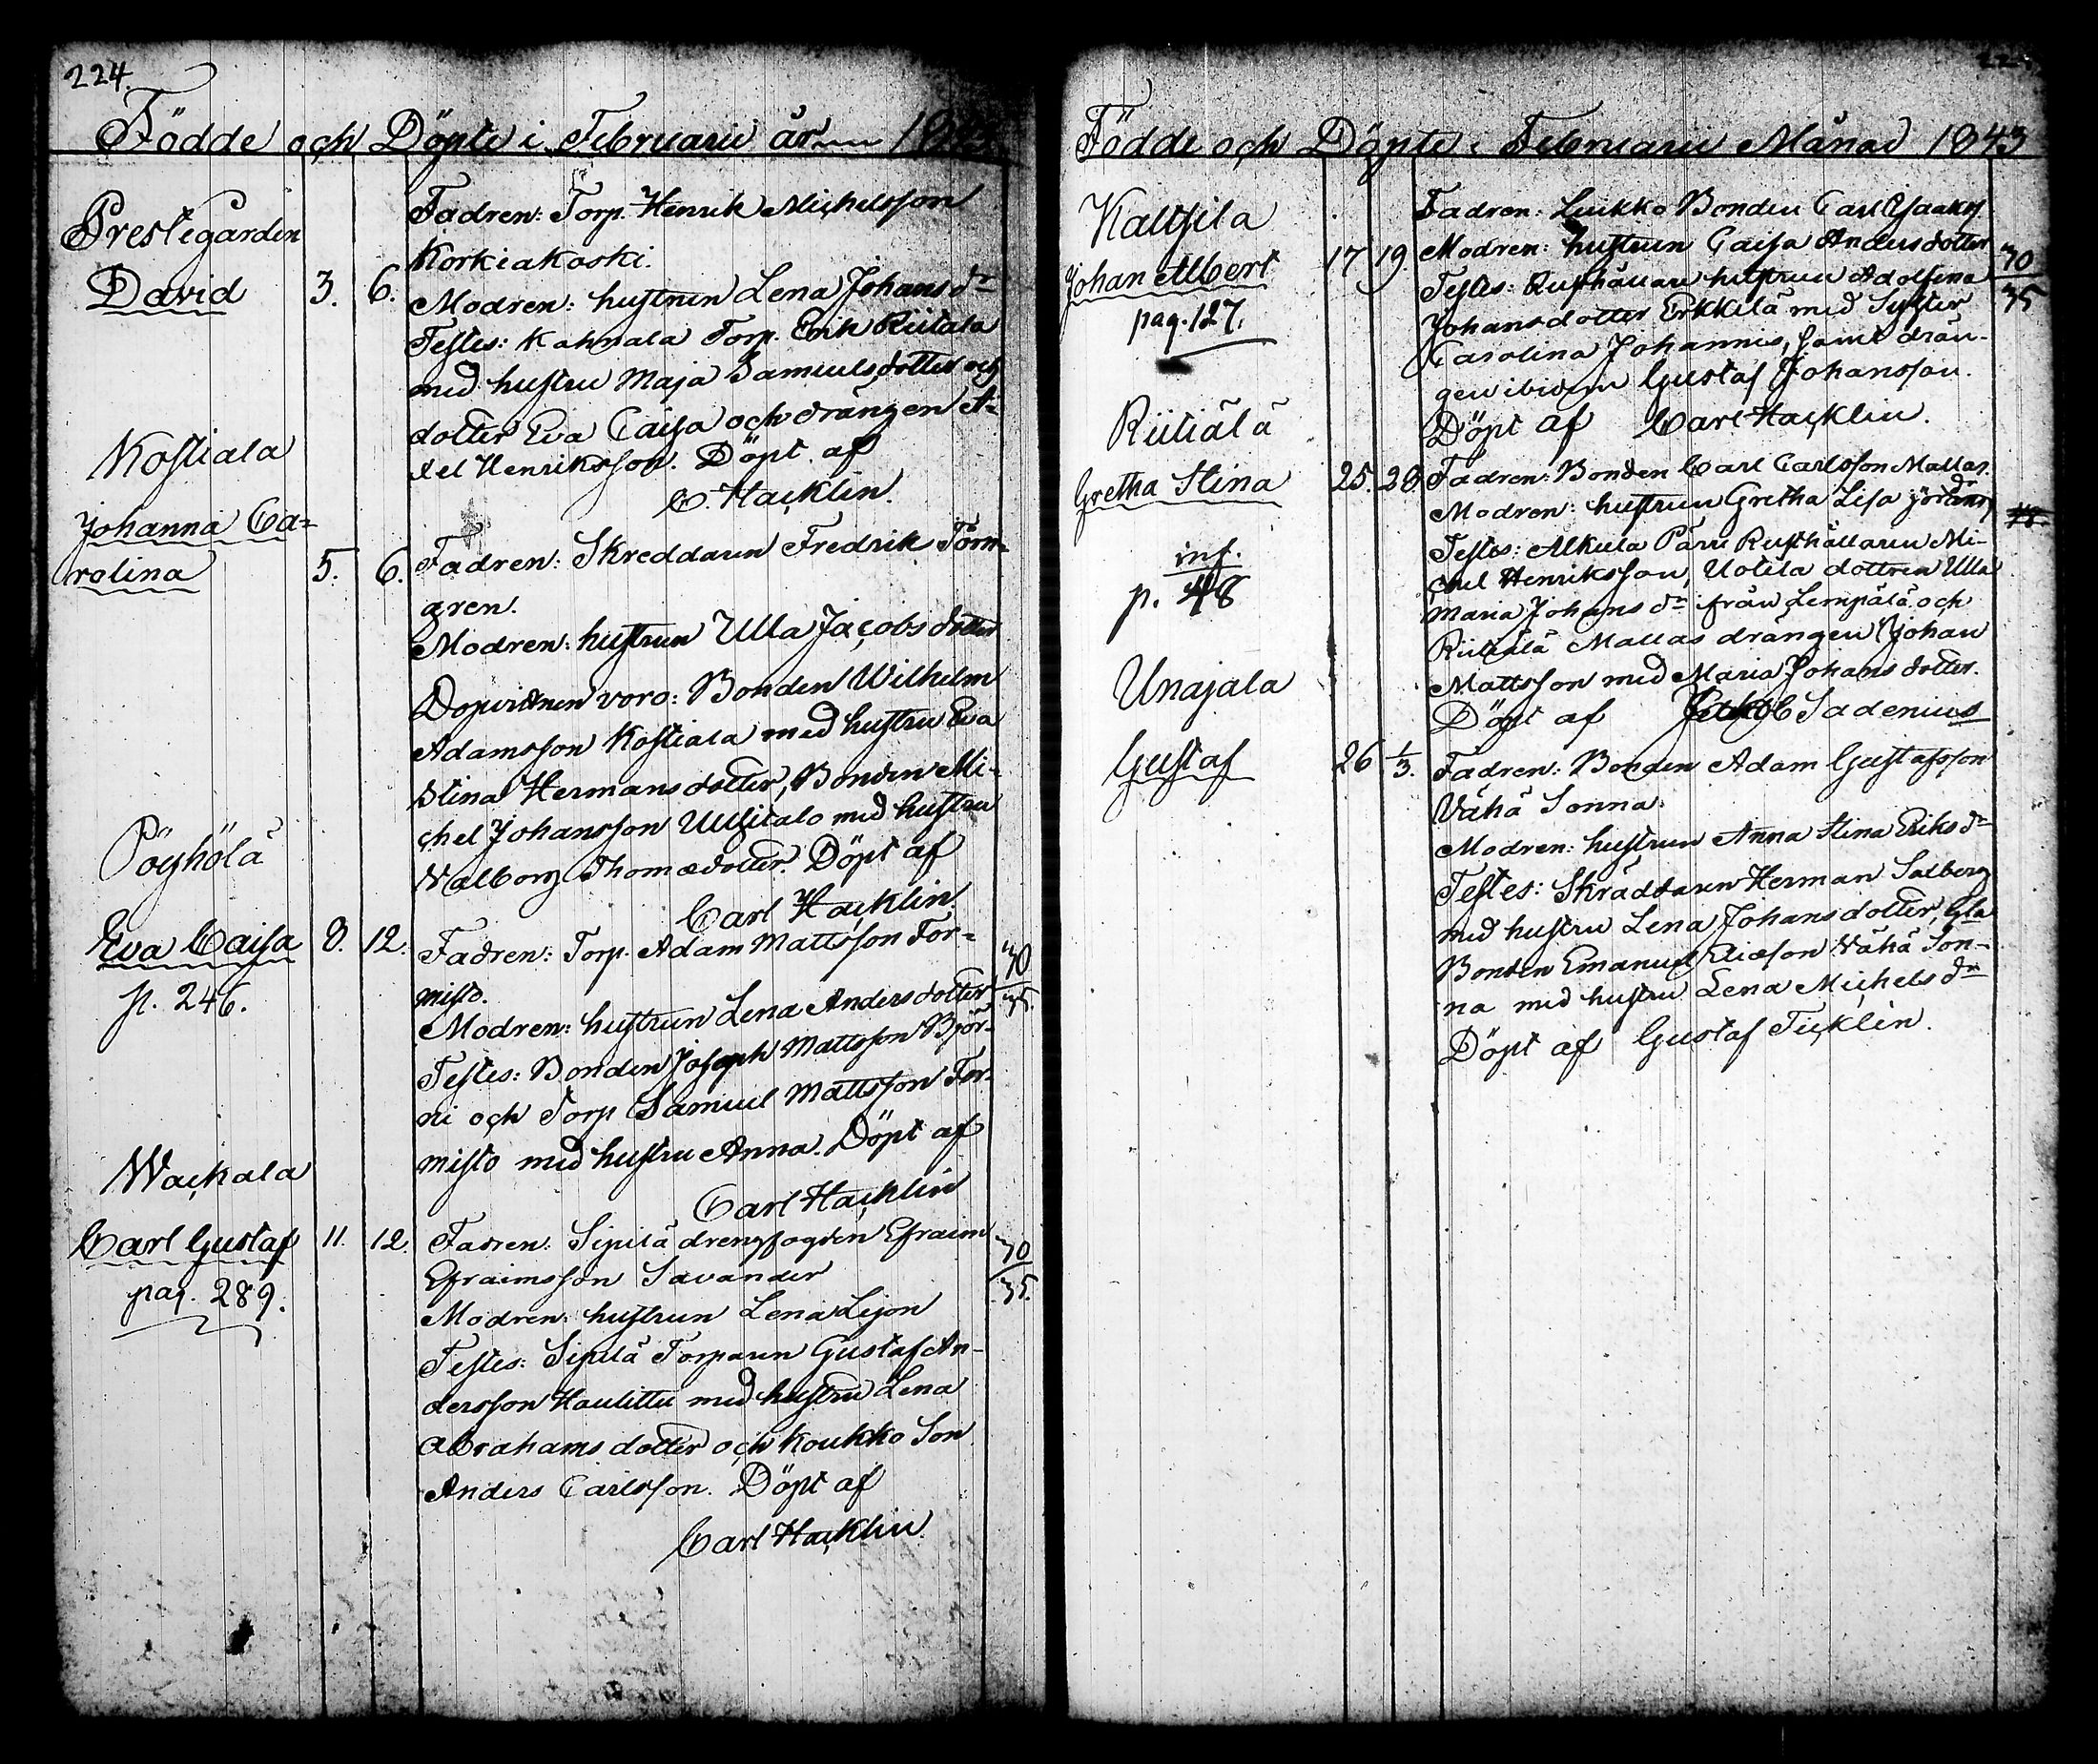 224.
Födde och Döpte i Februarii år 1843
Prestegården
David 3. 6.
Fadren: Torp. Henrik Michelsson
Korkiakoski.
Modren: hustrun Lena Johans dr
Testes: Kahnala Torp. Erik Riitala
med hustru Maja Samuelsdotter och
dotter Eva Caisa och drängen A=
xel Henriksson. Döpt af
C. Hacklin.
Kostiala
Johanna Ca=
rolina 5. 6.
Fadren: Skreddaren Fredrik Törn=
gren.
Modren: hustrun Ulla Jacobsdotter
Dopvitnen voro: Bonden Wilhelm
Adamsson Kostiala med hustru Eva
Stina Hermansdotter, Bonden Mi-
chel Johansson Uusitalo med hustru
Valborg Thomædotter. Döpt af
Carl Hacklin.
Pöyhölä
Eva Caisa 8. 12.
p. 246.
Fadren: Torp. Adam Mattsson Tor=
misto.
Modren: hustrun Lena Andersdotter
30
35.
Testes: Bonden Joseph Mattsson Björ-
ni och Torp Samuel Mattsson Tor-
misto med hustru Anna. Döpt af
Carl Hacklin
Wackala
Carl Gustaf 11. 12.
pag. 289.
Fadren: Sipilä drengfogden Efraim
Efraimsson Savander
Modren: hustrun Lena Lejon
30
35.
Testes: Sipilä Torparen Gustaf An-
dersson Haulittu med hustru Lena
Abrahamsdotter och Koukko Son
Anders Carlsson. Döpt af
Carl Hacklin.
Födde och Döpte i Februarii Månad 1843
Kaltsila
Johan Albert 17 19.
pag. 127.
Fadren: Luikko Bonden Carl Isaaks.
Modren: hustrun Caisa Andersdotter
30
35
Testes: Rusthållare hustrun Adolfina
Johansdotter Erkkilä med Syster
Carolina Johannis, samt drän-
gen ibidem Gustaf Johansson.
Döpt af Carl Hacklin.
Riitiälä
Gretha Stina 25. 28.
inf.
p. 48
Fadren: Bonden Carl Carlsson Mallas.
Modren: hustrun Gretha Lisa Jörans dr
48.
Testes: Alkula Paru Rusthållaren Mi-
chel Henriksson, Uotila dottren Ulla
Maria Johans dr från Lempälä och
Riitiälä Mallas drängen Johan
Mattsson med Maria Johansdotter.
Döpt af Jakob Sadenius
Unajala
Gustaf 26 1/3.
Fadren: Bonden Adam Gustafsson
Vähä Sonna.
Modren: hustrun Anna Stina Eriks dr
Testes: Skräddaren Herman Salberg
med hustru Lena Johansdotter, Gla
Bonden Emanuel Eliæson Vähä Son-
na med hustru Lena Michels dr
Döpt af Gustaf Ticklén.